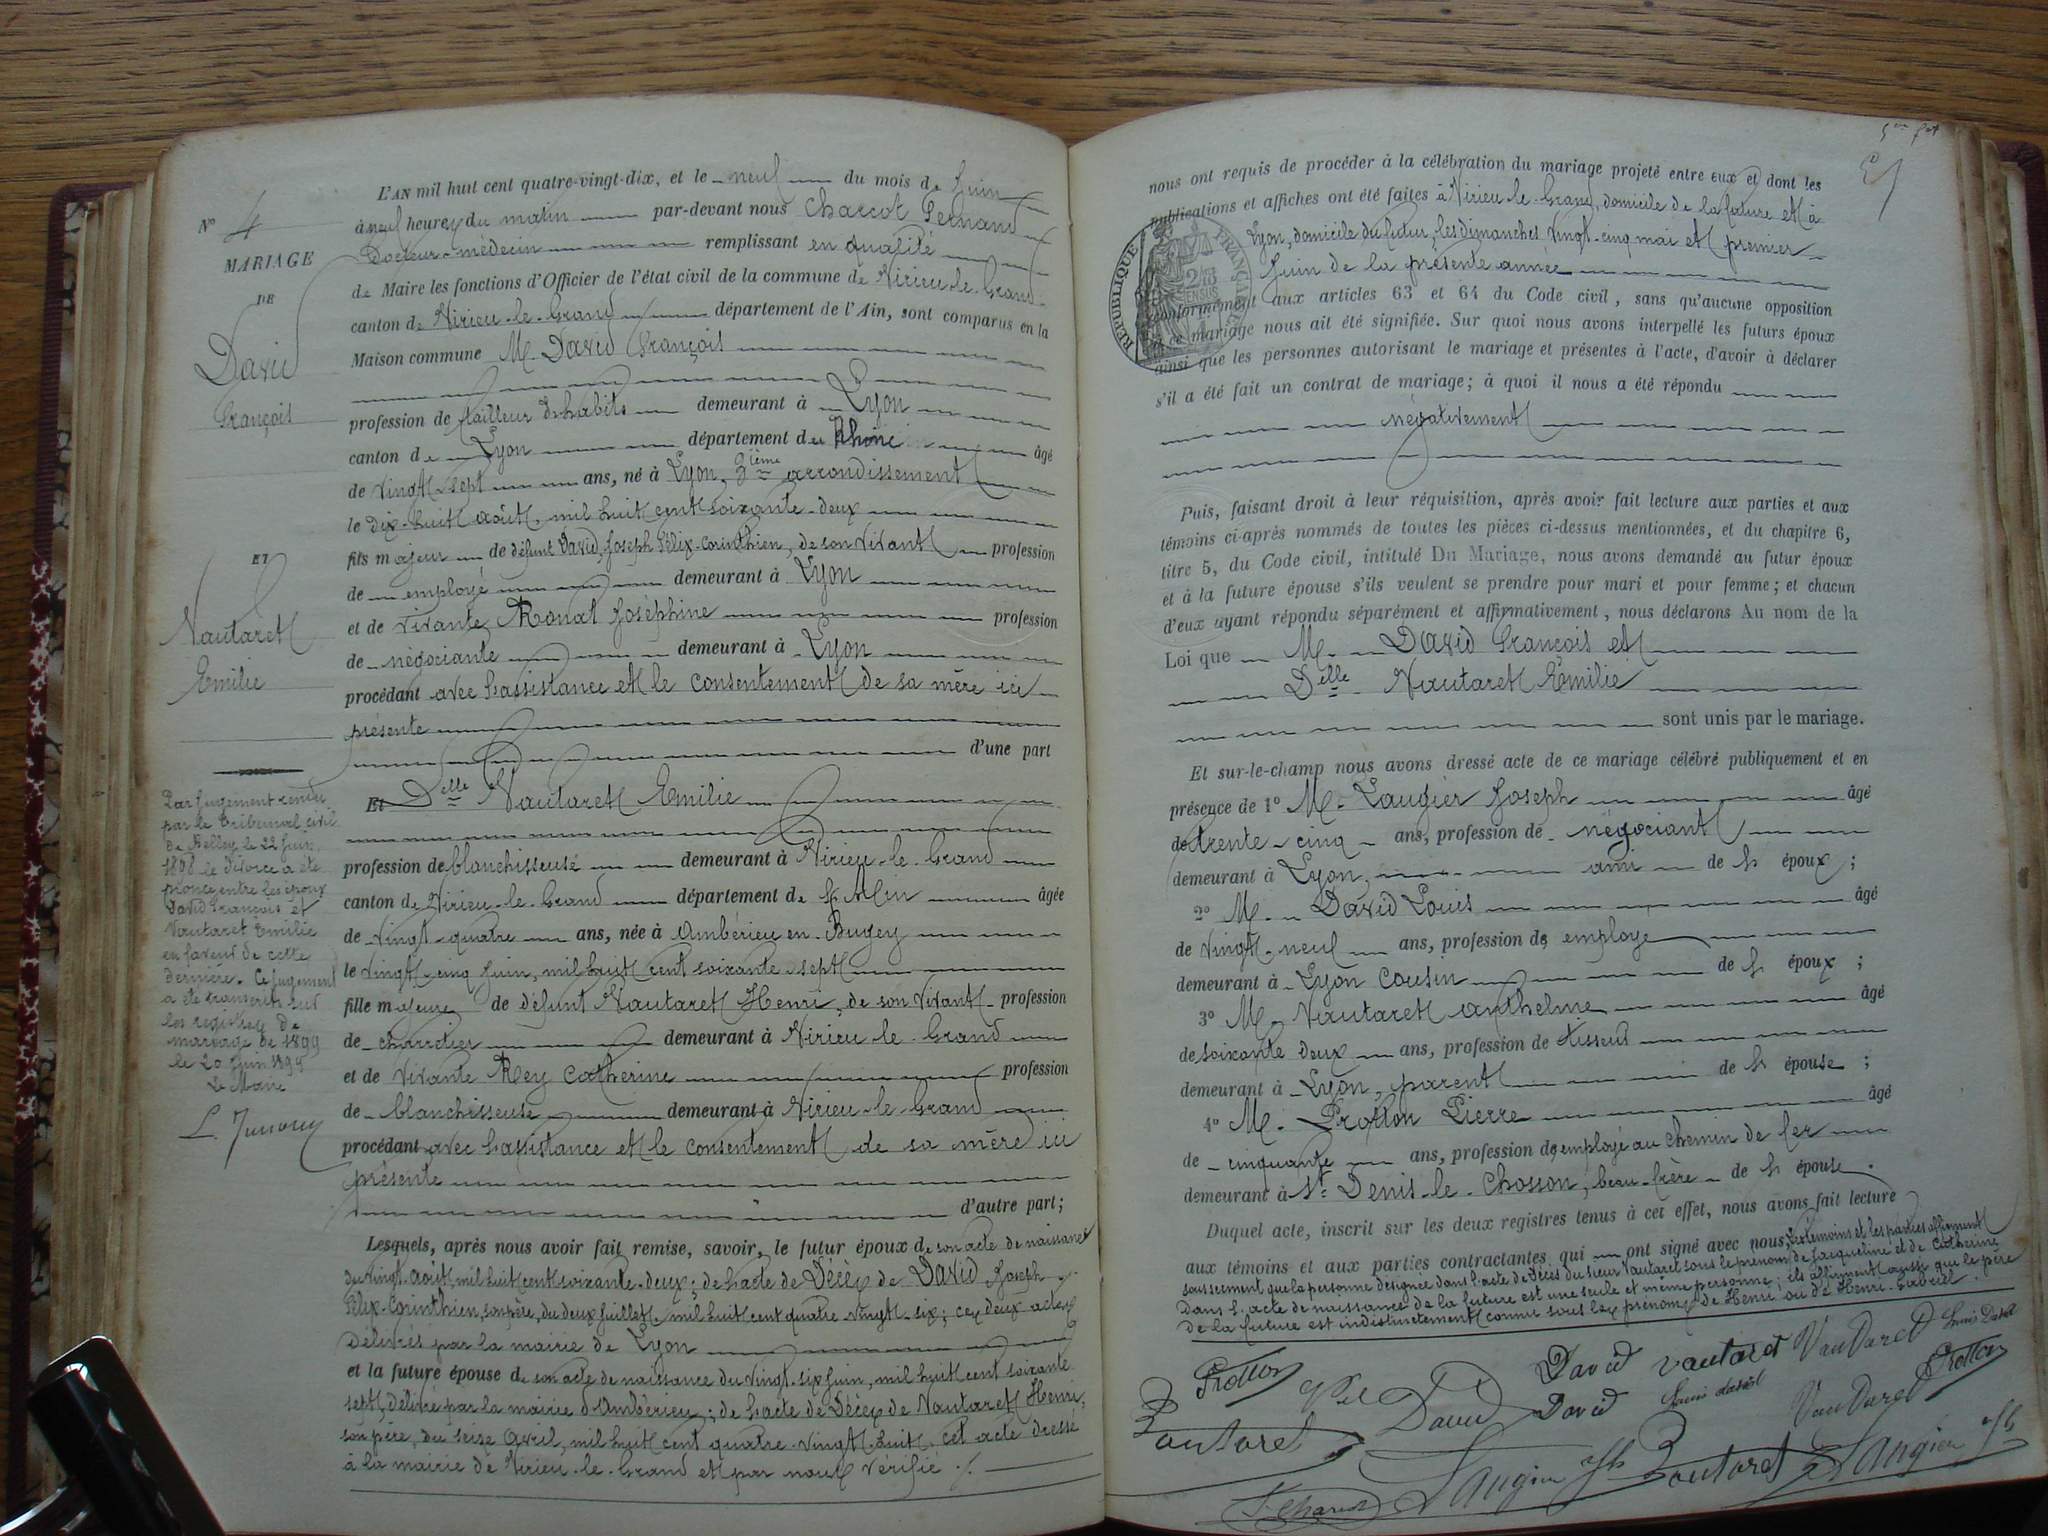 N° 4
MARIAGE
DE
David
François
ET
Vautaret
Emilie
Par jugement rendu
par le tribunal civil
de Belley le 22 juin
1898 le divorce a été
prononcé entre les époux
David François et
Vautaret Emilie
en faveur de cette
dernière. Ce jugement
a été transcrit sur
les registres de
mariage de 1899
le 20 juin 1899
Le Maire
L'AN mil huit cent quatre-vingt-dix, et le neuf du mois de Juin
à neuf heures du matin par-devant nous Charcot Fernand
Docteur-médecin remplissant en qualité
de Maire les fonctions d'Officier de l'état civil de la commune de Virieu-le-Grand
canton de Virieu-le-Grand département de l'Ain, sont comparus en la
Maison commune M. David François
profession de tailleur d'habits demeurant à Lyon
canton de Lyon département du Rhône âgé
de vingt-sept ans, né à Lyon, 3ième arrondissement
le dix-huit août mil huit cent soixante-deux
fils majeur de défunt David, Joseph Félix-Corinthien, de son vivant profession
de employé demeurant à Lyon
et de vivante Ronat Joséphine profession
de négociante demeurant à Lyon
procédant avec l'assistance et le consentement de sa mère ici
présente
d'une part
Et Delle Vautaret Emilie
profession de blanchisseuse demeurant à Virieu-le-Grand
canton de Virieu-le-Grand département de l'Ain âgée
de vingt-quatre ans, née à Ambérieu en Bugey
le vingt-cinq juin, mil huit cent soixante-sept
fille majeure de défunt Vautaret Henri, de son vivant profession
de charretier demeurant à Virieu-le-Grand
et de vivante Rey Catherine profession
de blanchisseuse demeurant à Virieu-le-Grand
procédant avec l'assistance et le consentement de sa mère ici
présente
d'autre part;
Lesquels, après nous avoir fait remise, savoir, le futur époux de son acte de naissance
du vingt août mil huit cent soixante-deux; de l'acte de Décès de David Joseph
Félix-Corinthien, son père, du deux juillet mil huit cent quatre-vingt-six; ces deux actes
délivrés par la mairie de Lyon
et la future épouse de son acte de naissance du vingt-six juin, mil huit cent soixante
sept, délivré par la mairie d'Ambérieu; de l'acte de Décès de Vautaret Henri,
son père, du seize avril, mil huit cent quatre-vingt-huit, cet acte dressé
à la mairie de Virieu-le-Grand et par nous vérifié ./.
nous ont requis de procéder à la célébration du mariage projeté entre eux et dont les
publications et affiches ont été faites à Virieu-le-Grand, domicile de la future et à
Lyon, domicile du futur, les dimanches vingt-cinq mai et premier
Juin de la présente année
conformément aux articles 63 et 64 du Code civil, sans qu'aucune opposition
à ce mariage nous ait été signifiée. Sur quoi nous avons interpellé les futurs époux
ainsi que les personnes autorisant le mariage et présentes à l'acte, d'avoir à déclarer
s'il a été fait un contrat de mariage; à quoi il nous a été répondu
négativement
RÉPUBLIQUE FRANÇAISE
Puis, faisant droit à leur réquisition, après avoir fait lecture aux parties et aux
témoins ci-après nommés de toutes les pièces ci-dessus mentionnées, et du chapitre 6,
titre 5, du Code civil, intitulé Du Mariage, nous avons demandé au futur époux
et à la future épouse s'ils veulent se prendre pour mari et pour femme; et chacun
d'eux ayant répondu séparément et affirmativement, nous déclarons Au nom de la
Loi que M. David François et
Delle Vautaret Emilie
sont unis par le mariage.
Et sur-le-champ nous avons dressé acte de ce mariage célébré publiquement et en
présence de 1° M. Laugier Joseph âgé
de trente-cinq ans, profession de négociant
demeurant à Lyon, ami de l' époux;
2° M. David Louis âgé
de vingt-neuf ans, profession de employé
demeurant à Lyon cousin de l' époux;
3° M. Vautaret Anthelme âgé
de soixante deux ans, profession de tisseur
demeurant à Lyon, parent de l' épouse;
4° M. Protton Pierre âgé
de cinquante ans, profession de employé au chemin de fer
demeurant à St Denis-le-Chosson, beau-frère de l' épouse.
Duquel acte, inscrit sur les deux registres tenus à cet effet, nous avons fait lecture
aux témoins et aux parties contractantes qui ont signé avec nous, les témoins et les parties affirment
sous serment que la personne désignée dans l'acte de Décès du sieur Vautaret sous le prénom de Jacqueline et de Catherine
dans l'acte de naissance de la future est une seule et même personne; ils affirment aussi que le père
de la future est indistinctement connu sous les prénoms de Henri ou de Henri-Gabriel.
David Vautaret Vautaret Louis David
Protton David David Louis David Vautaret Protton
Vautaret
Laugier Jph Vautaret Laugier Jph
F. Charcot